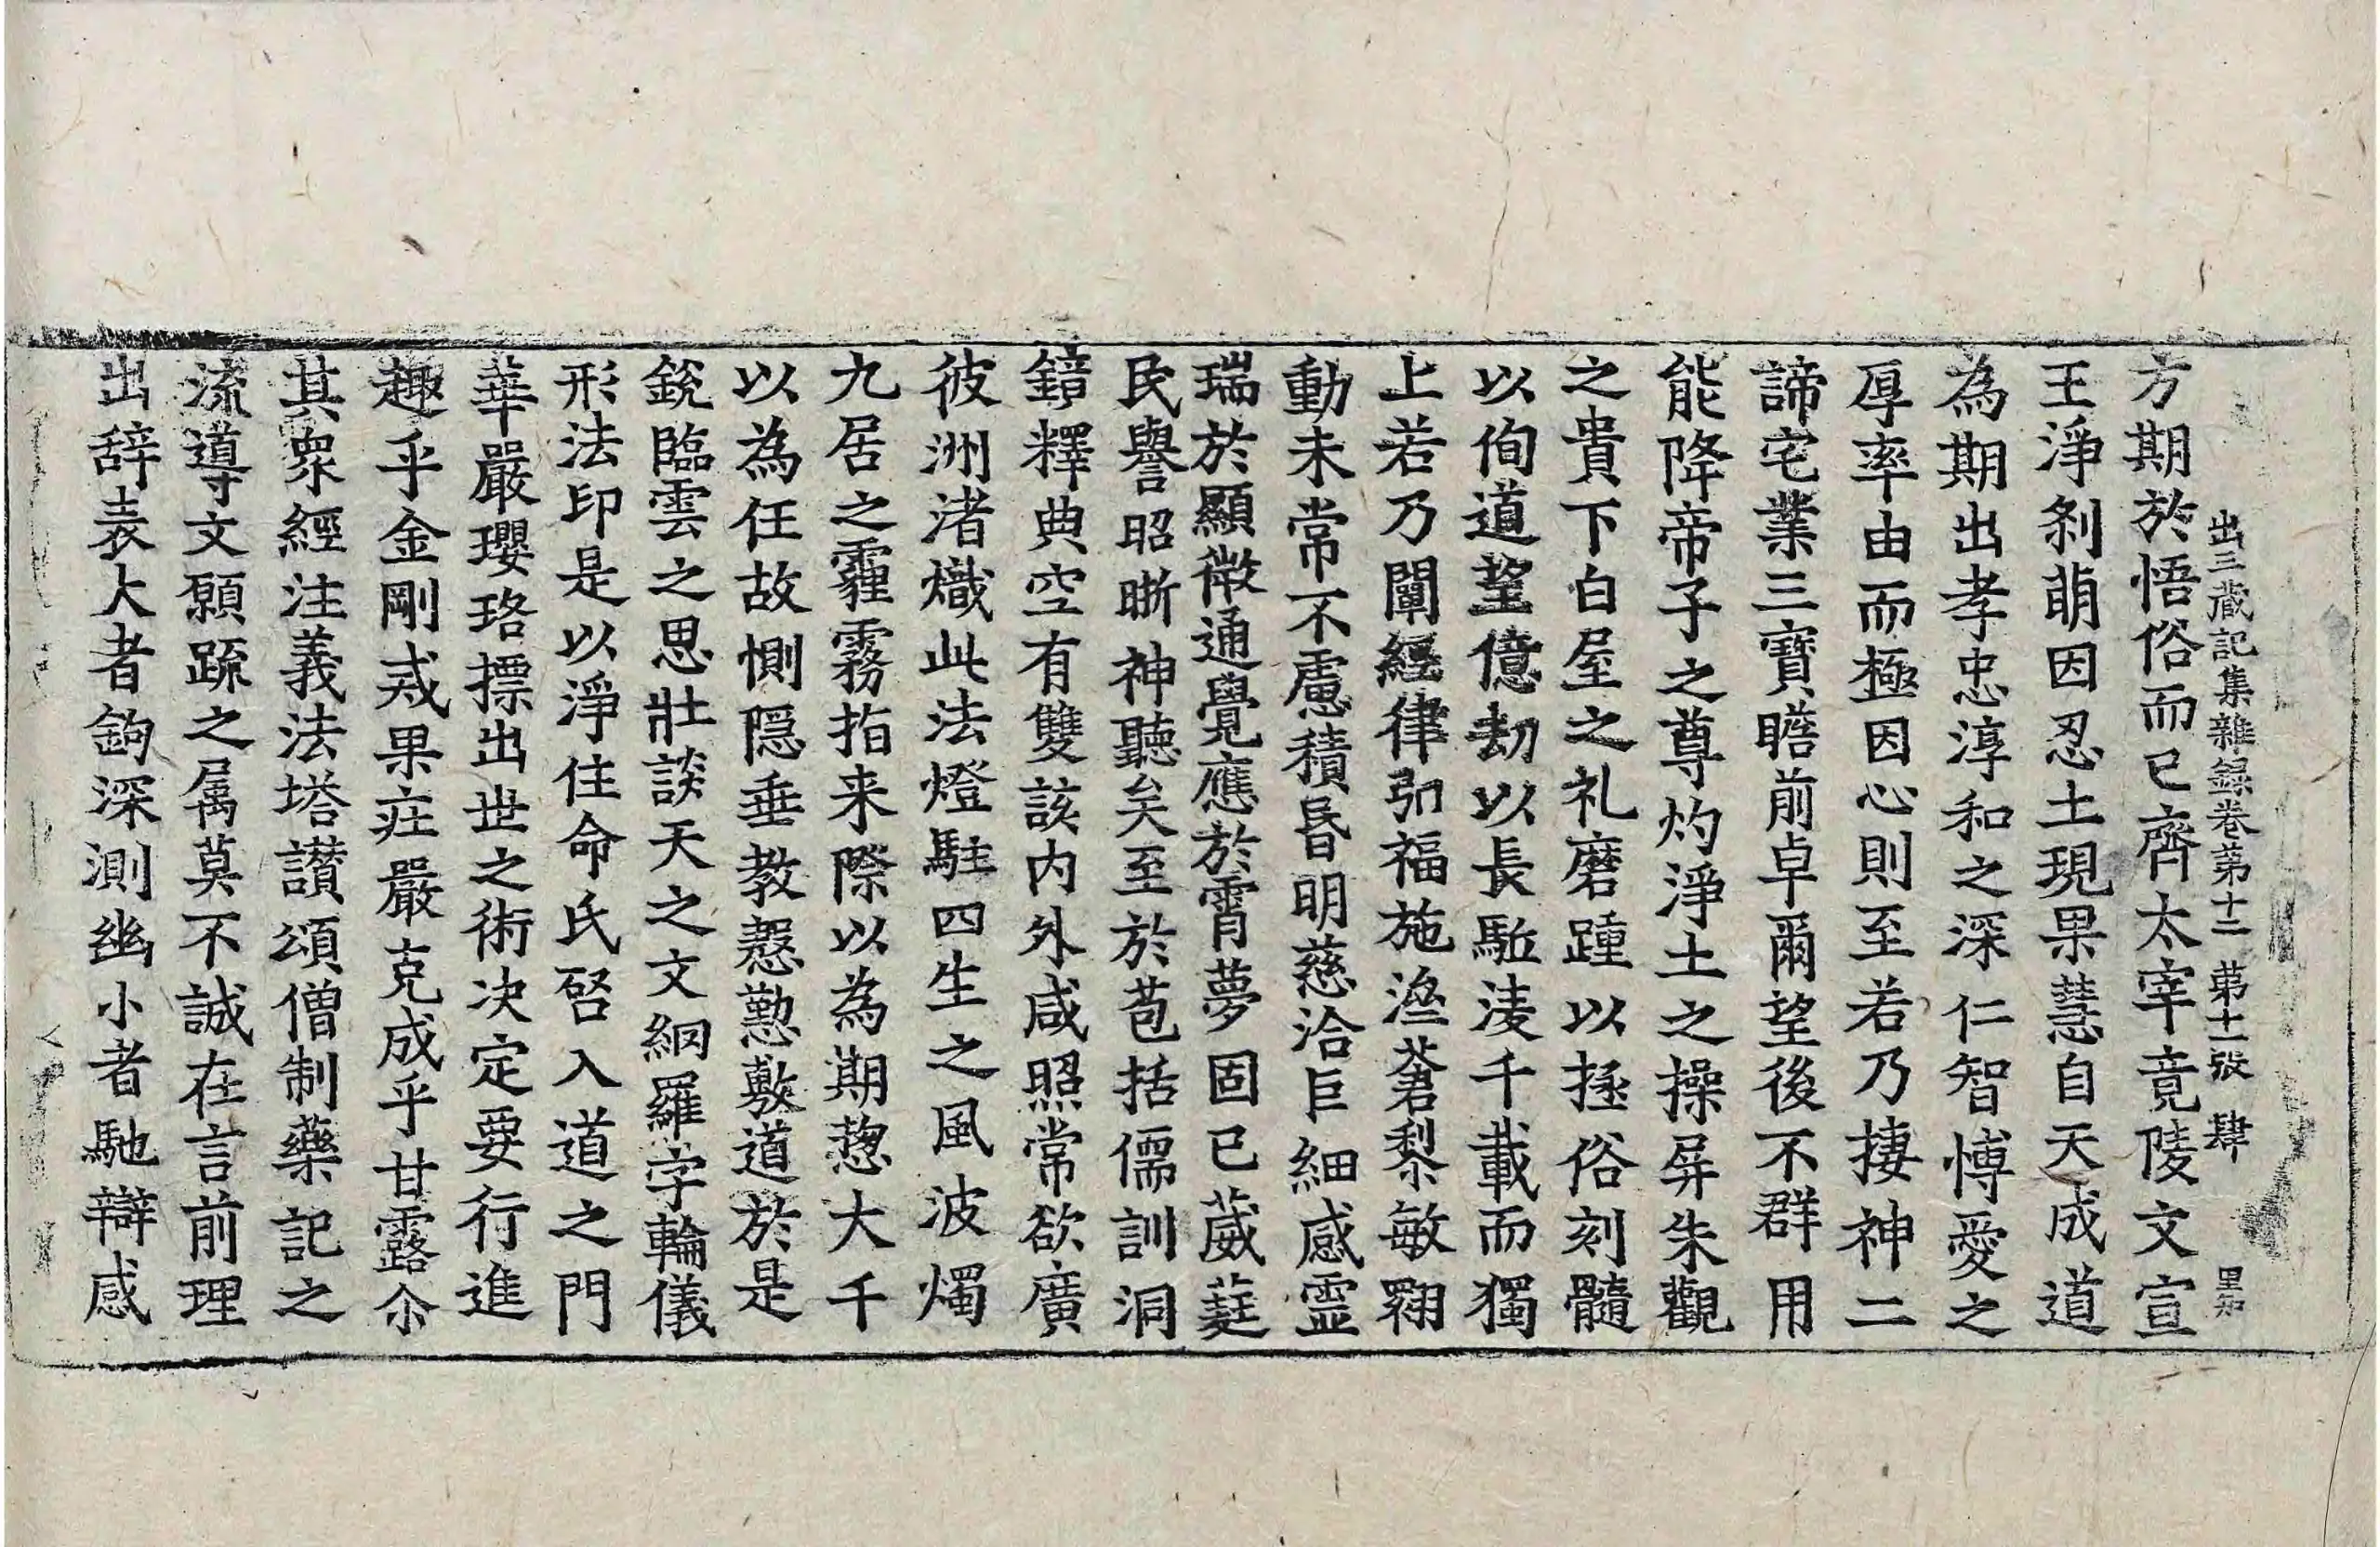 出三藏記集雜録卷第十二 第十一張 肆 里和
方期於悟俗而已齊太宰竟陵文宣
王淨剎萌因忍土現果慧自天成道
為期出孝忠淳和之深仁智愽愛之
厚率由而極因心則至若乃捿神二
諦宅業三寶瞻前卓爾望後不群用
能降帝子之尊灼淨土之操屏朱觀
之貴下白屋之礼磨踵以拯俗刻髓
以徇道望億劫以長駈淩千載而獨
上若乃闡經律引福施澄蒼黎敏翾
動未常不慮積昏明慈洽巨細感靈
瑞於顯徴通覺應於霄夢固已葳蕤
民譽昭晣神聽矣至於苞括儒訓洞
鏡釋典空有雙該内外咸照常欲廣
彼洲渚熾此法燈駐四生之風波燭
九居之霾霧指来際以為期揔大千
以為任故惻隱垂教慇懃敷道於是
銳臨雲之思壯談天之文網羅字輪儀
形法印是以淨住命氏啓入道之門
華嚴瓔珞摽出世之術决定要行進
趣乎金剛戒果莊嚴克成乎甘露尒
其衆經注義法塔讚頌僧制藥記之
流導文願疏之属莫不誠在言前理
出辞表大者鈎深測幽小者馳辯感